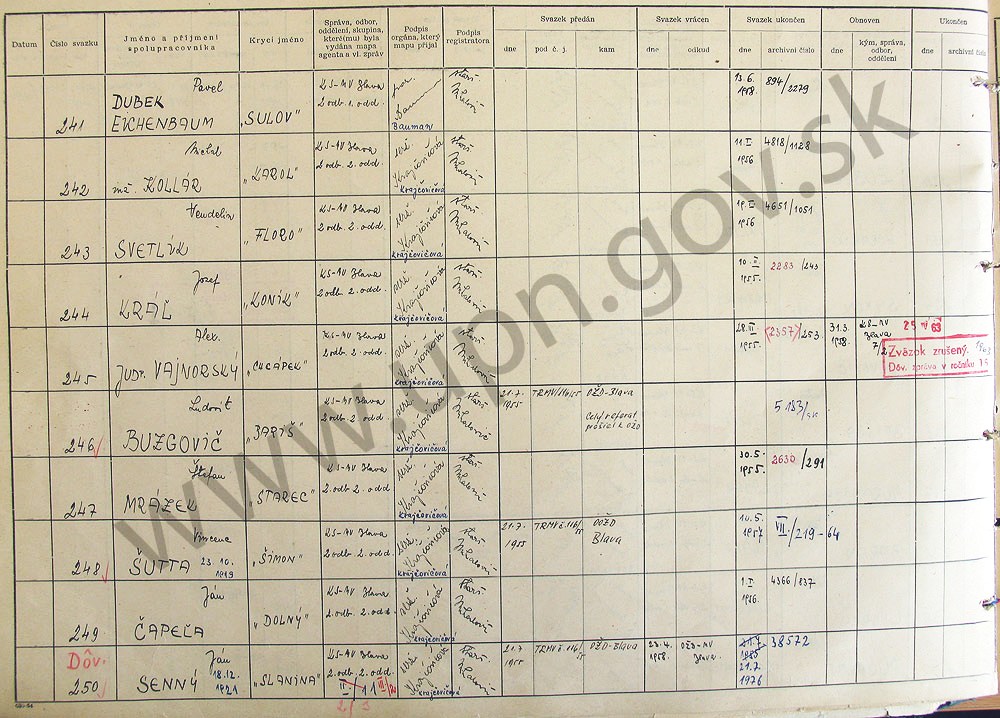 Datum
Číslo svazku
Jméno a příjmení
spolupracovníka
Krycí jméno
Správa, odbor,
oddělení, skupina,
které(mu) byla
vydána mapa
agenta a vl. zpráv
Podpis
orgána, který
mapu přijal
Podpis
registratora
Svazek předán
dne
pod č. j.
kam
Svazek vrácen
dne
odkud
Svazek ukončen
dne
archivní číslo
Obnoven
dne
kým, správa,
odbor,
oddělení
Ukončen
dne
archivní číslo
241
Pavel
DUBEK
EICHENBAUM
„SULOV"
KS-MV Blava
2 odb. 1. odd.
Bauman
13.6.
1958.
894/2279
242
Michal
KOLLÁR
„KAROL"
KS-MV Blava
2 odb. 2. odd.
Krajčovičová
11.I
1956
4818/1128
243
Vendelín
SVETLÍK
„FLORO"
KS-MV Blava
2 odb. 2. odd.
Krajčovičová
19.I
1956
4651/1051
244
Jozef
KRÁĽ
„KONÍK"
KS-MV Blava
2 odb. 2. odd.
Krajčovičová
10.II.
1955.
2283/243
245
Alex.
JUDr. VAJNORSKÝ
„CHCÁPEK"
KS-MV Blava
2 odb. 2. odd.
Krajčovičová
28.III
1955.
(2357)/253
31.3.
1958.
KS-MV
Blava
25 63
Zväzok zrušený.
Dôv. zpráva v ročníku
246
Ľudovít
BUZGOVIČ
„JARIŠ"
KS-MV Blava
2 odb. 2. odd.
Krajčovičová
21.7.
1955
OŽD-Blava
Celý referát
prešiel k OŽD
5183
247
Štefan
MRAZEK
„STAREC"
KS-MV Blava
2 odb. 2. odd.
Krajčovičová
30.5.
1955.
2630/291
248
Vincenc
ŠUTTA 23.10.
1919
„ŠIMON"
KS-MV Blava
2 odb. 2. odd.
Krajčovičová
21.7.
1955
TRMV č. 116/55
OŽD
Blava
10.5.
1957
VII./219-64
249
Ján
ČAPEĽA
„DOLNÝ"
KS-MV Blava
2. odb. 2. odd.
Krajčovičová
1.I
1956.
4366/837
Dôv.
250
Ján
SENNÝ 18.12.
1921
„SLANINA"
KS-MV Blava
2. odb. 2. odd.
2/3
Krajčovičová
21.7
1955
TRMV č. 116/55
OŽD-Blava
23.4.
1958.
OŽD-MV
Blava.
21.7.
1976
38572
www.upn.gov.sk